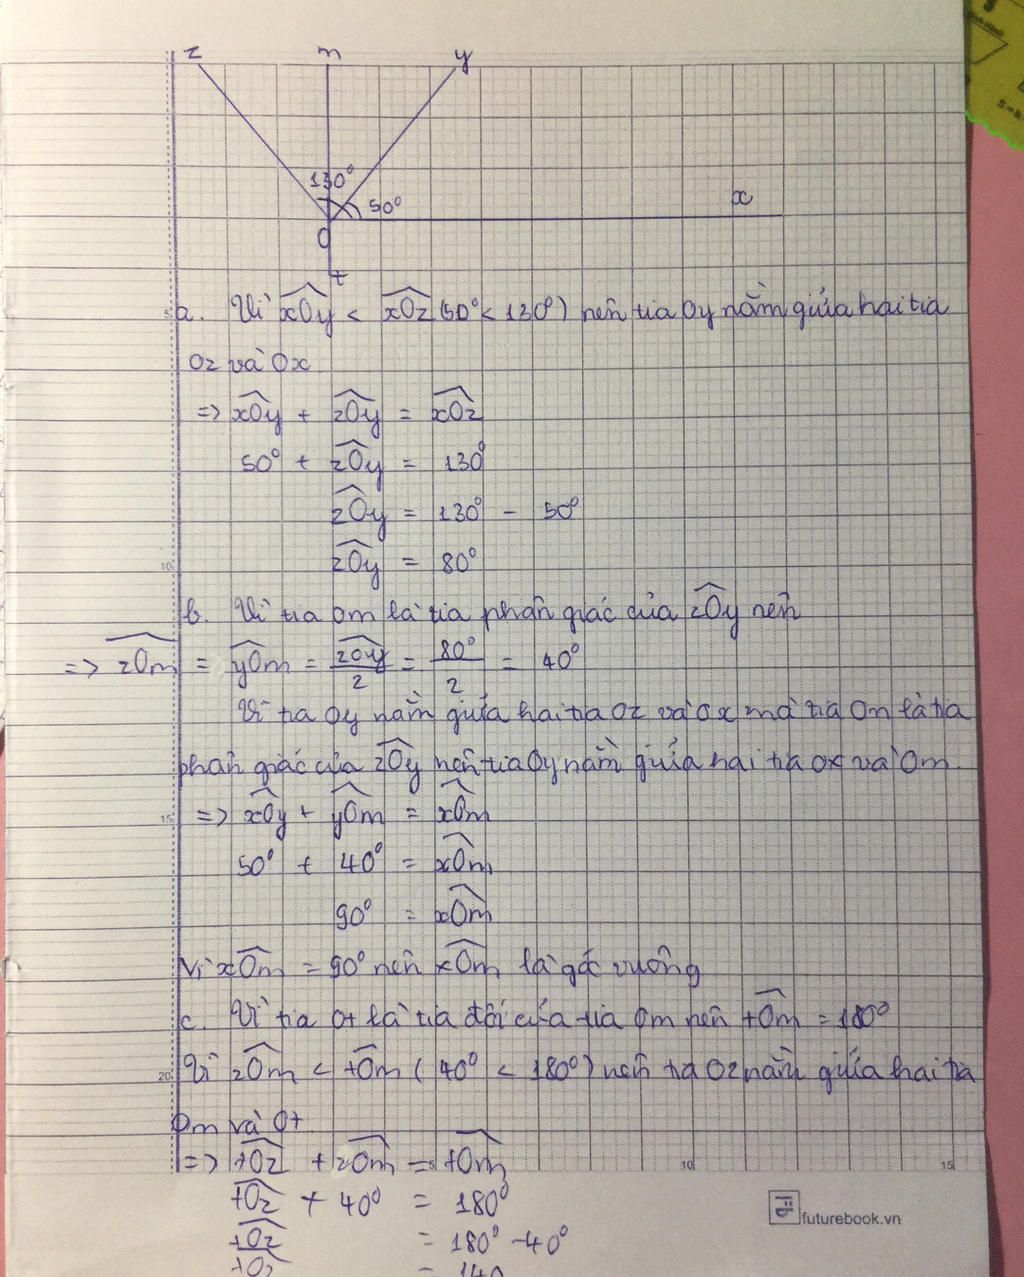 z m y
130° 50° x
O
t
a. Vì xOy < xOz (50° < 130°) nên tia Oy nằm giữa hai tia
Oz và Ox
=> xOy + zOy = xOz
50° + zOy = 130°
zOy = 130° - 50°
zOy = 80°
b. Vì tia Om là tia phân giác của zOy nên
=> zOm = yOm = zOy/2 = 80°/2 = 40°
Vì tia Oy nằm giữa hai tia Oz và Ox mà tia Om là tia
phân giác của zOy nên tia Oy nằm giữa hai tia Ox và Om
=> xOy + yOm = xOm
50° + 40° = xOm
90° = xOm
Vì xOm = 90° nên xOm là góc vuông
c. Vì tia Ot là tia đối của tia Om nên tOm = 180°
Vì zOm < tOm (40° < 180°) nên tia Oz nằm giữa hai tia
Om và Ot
=> tOz + zOm = tOm
tOz + 40° = 180°
tOz = 180° - 40°
tOz = 140
5
10
15
20
5 10 15
futurebook.vn